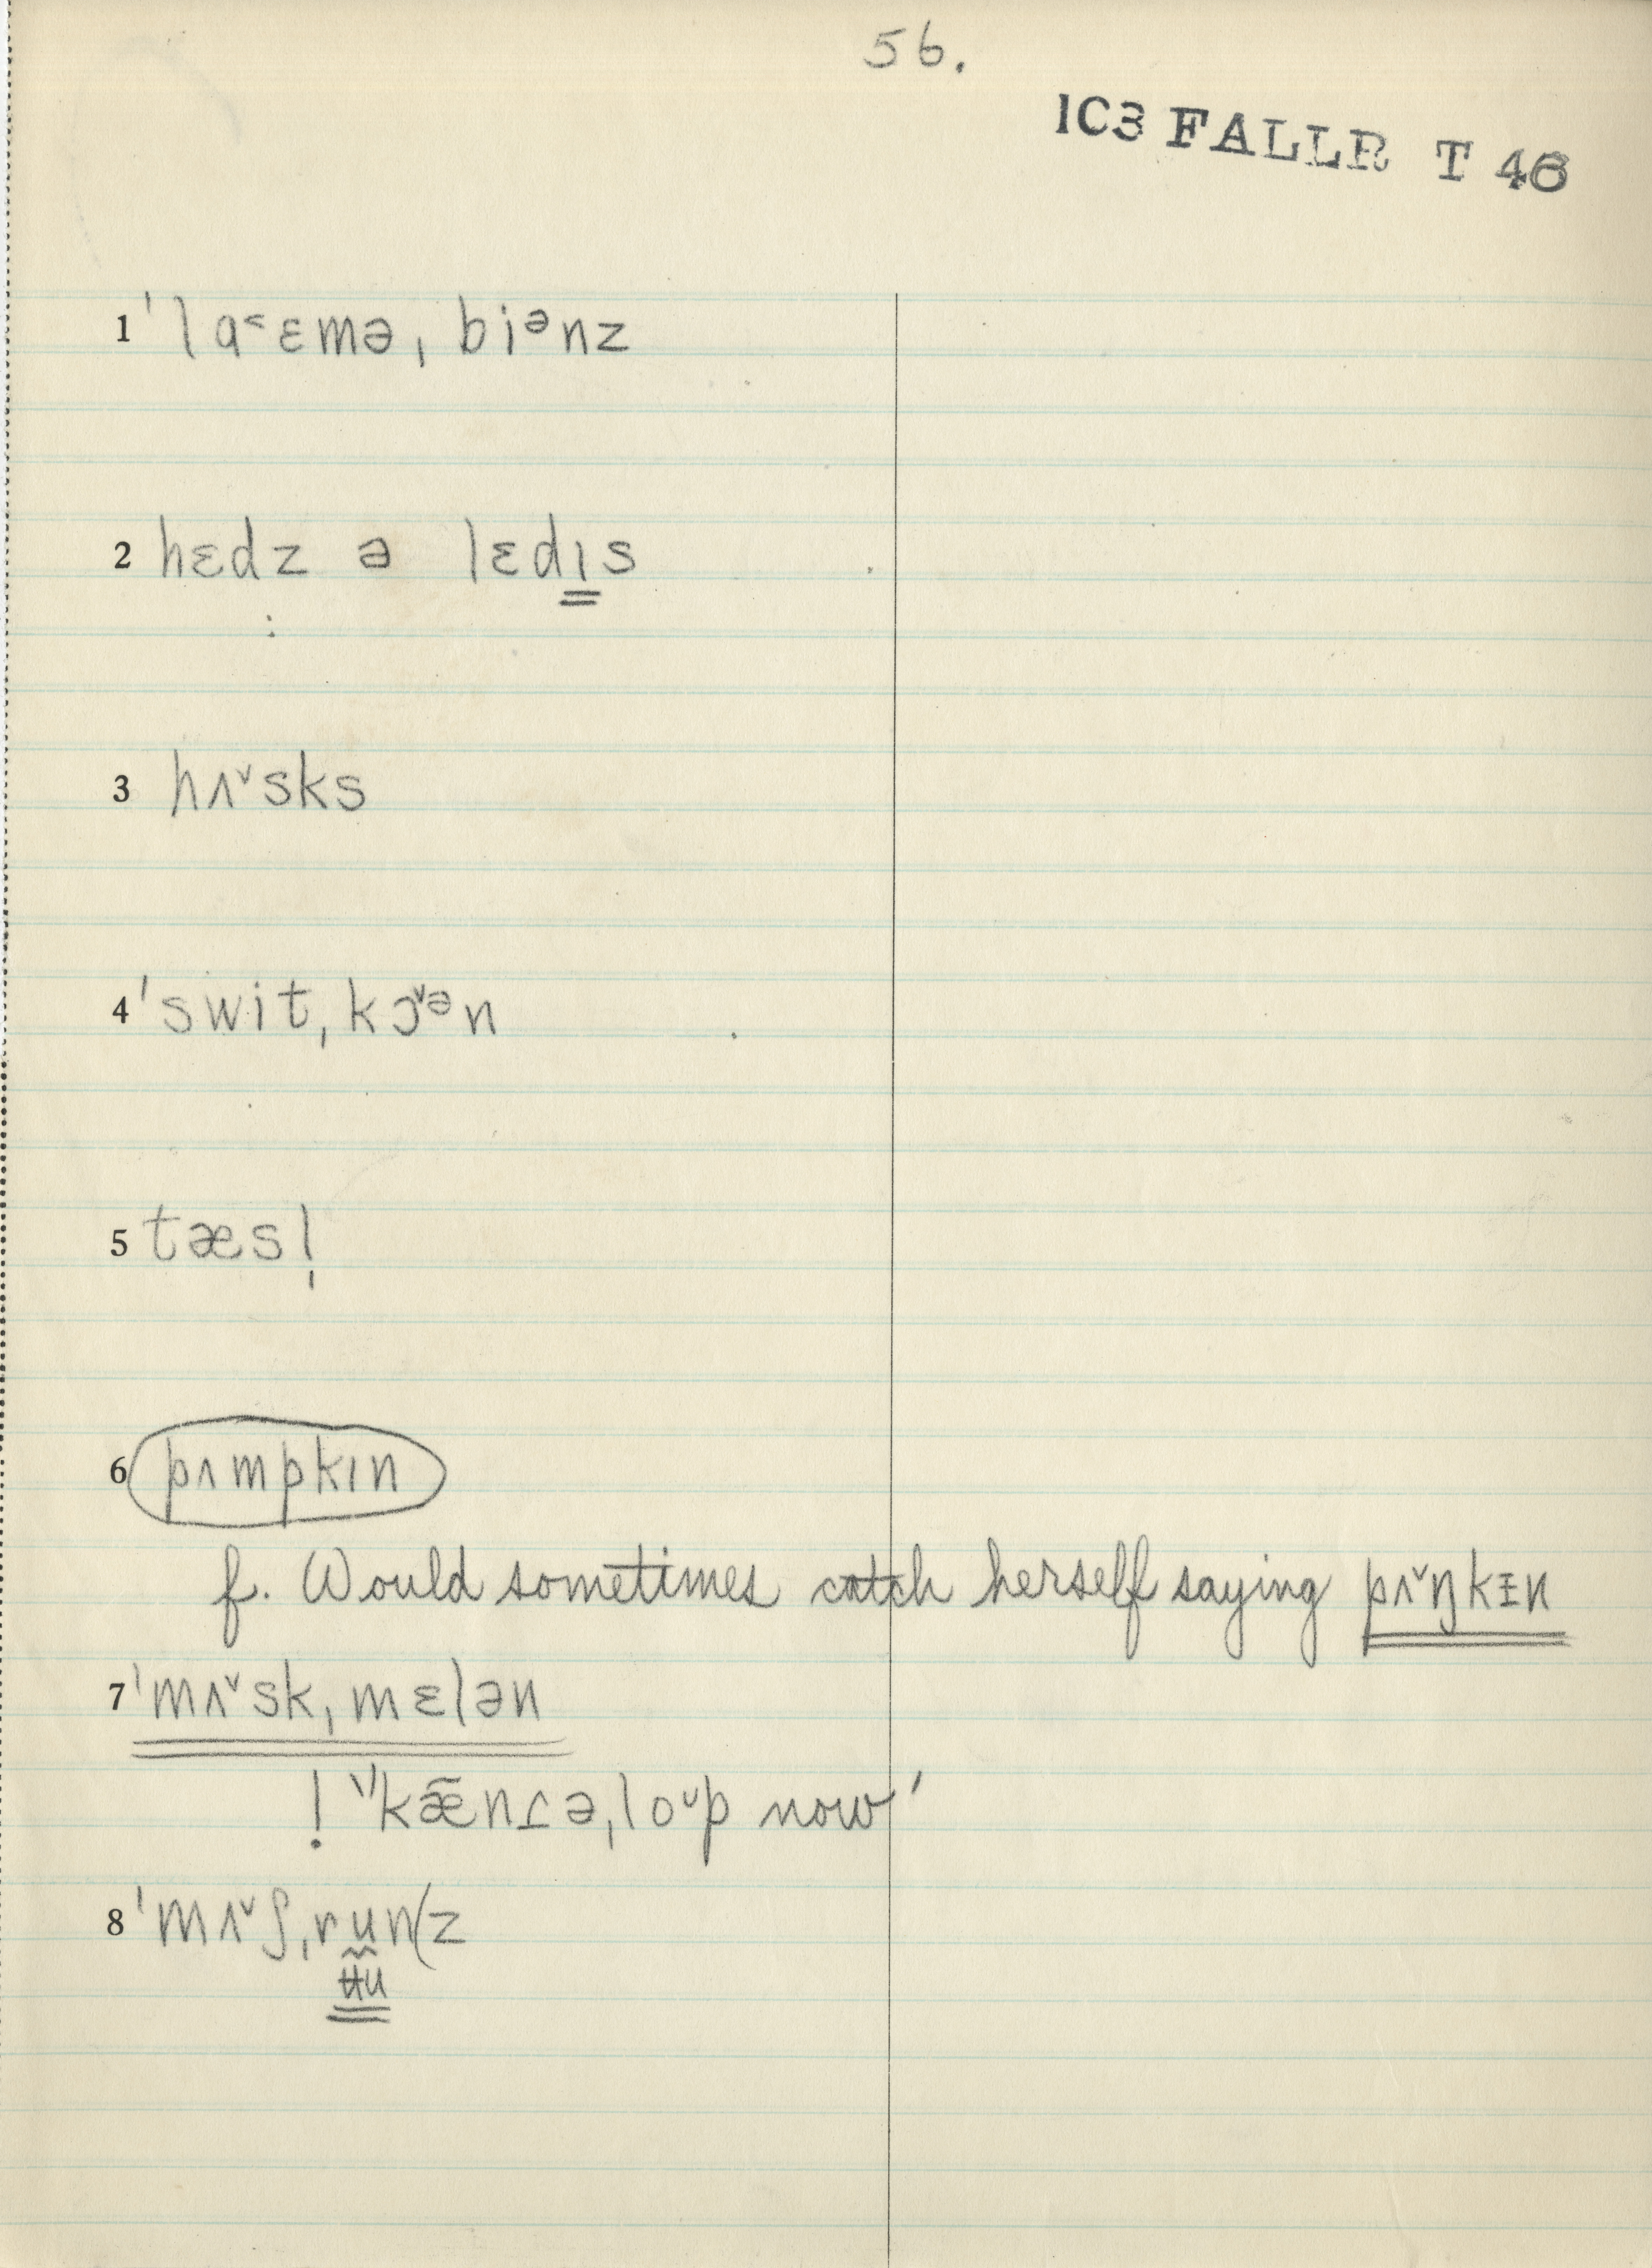 56.
1C3 FALLR T 46
1 ˈlɑ˂ɛməˌbiᵊnz
2 hɛdz ə lɛdɪs
3 hʌˇsks
4 ˈswitˌkɔˇᵊn
5 tæsl̩
6 pʌmpkɪn
f. Would sometimes catch herself saying pʌˇŋkɪ̵n
7 ˈmʌˇskˌmɛlən
! "kæ̃nɾəˌloᵘp now'
8 ˈmʌˇʃˌrun(z
ʉu